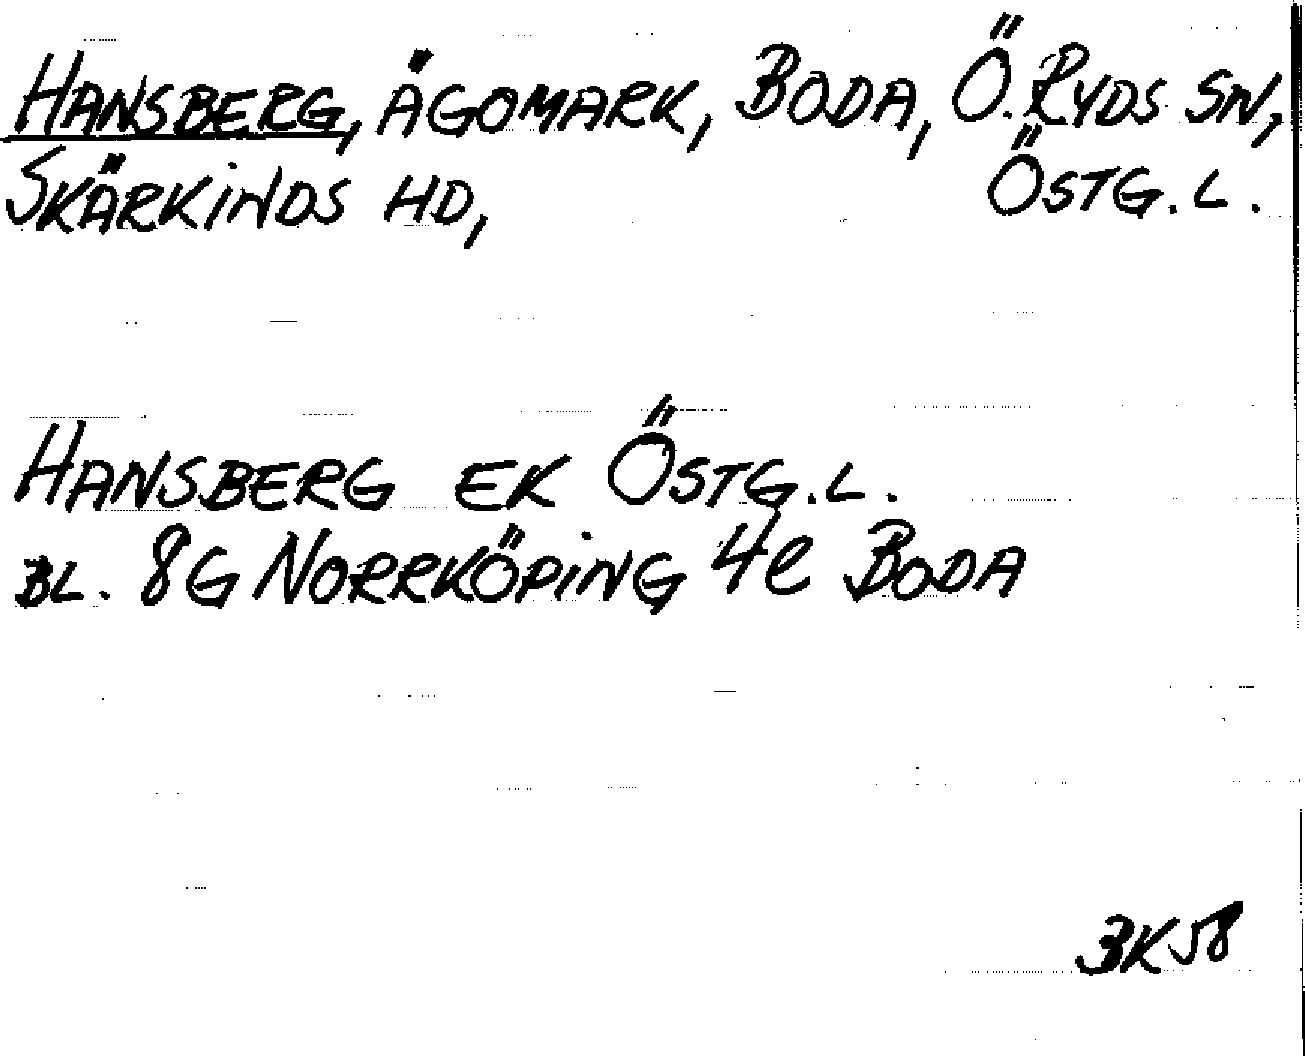 HANSBERG, ÄGOMARK, BODA, Ö. RYDS SN,
SKÄRKINDS HD, ÖSTG. L.
HANSBERG EK ÖSTG. L.
BL. 8G NORRKÖPING 4e BODA
BK58